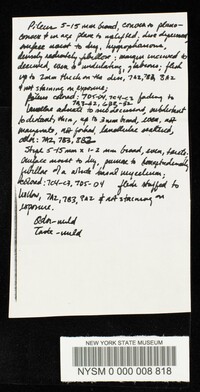 Pileus 5-15 mm broad, convex to plano-
convex in age, plane to uplifted, disc depressed
surface moist to dry, hygrophanous,
densely radially fibrillose; margin incurved to
decurved, even to undulating, flesh
up to 2 mm thick on the disc, 7A2, 7B3, 8A2
not staining on exposure;
Pileus colored: 705-04, 704-C2 fading to
Lamellae adnate to subdecurrent, subdistant
to distant, thin, up to 2 mm broad, even, not
marginate, not forked, lamellulae
color: 7A2, 7B3,
Stipe 5-15 mm x 1-2 mm broad, even, terete,
surface moist to dry, pruinose to longitudinally
fibrillose a white basal mycelium;
colored: 704-C3, 705-04 flesh stuffed to
hollow, 7A2, 7B3, 9A2 & not staining on
exposure.
Odor - mild
Taste - mild
NEW YORK STATE MUSEUM
NYSM 0 000 008 818